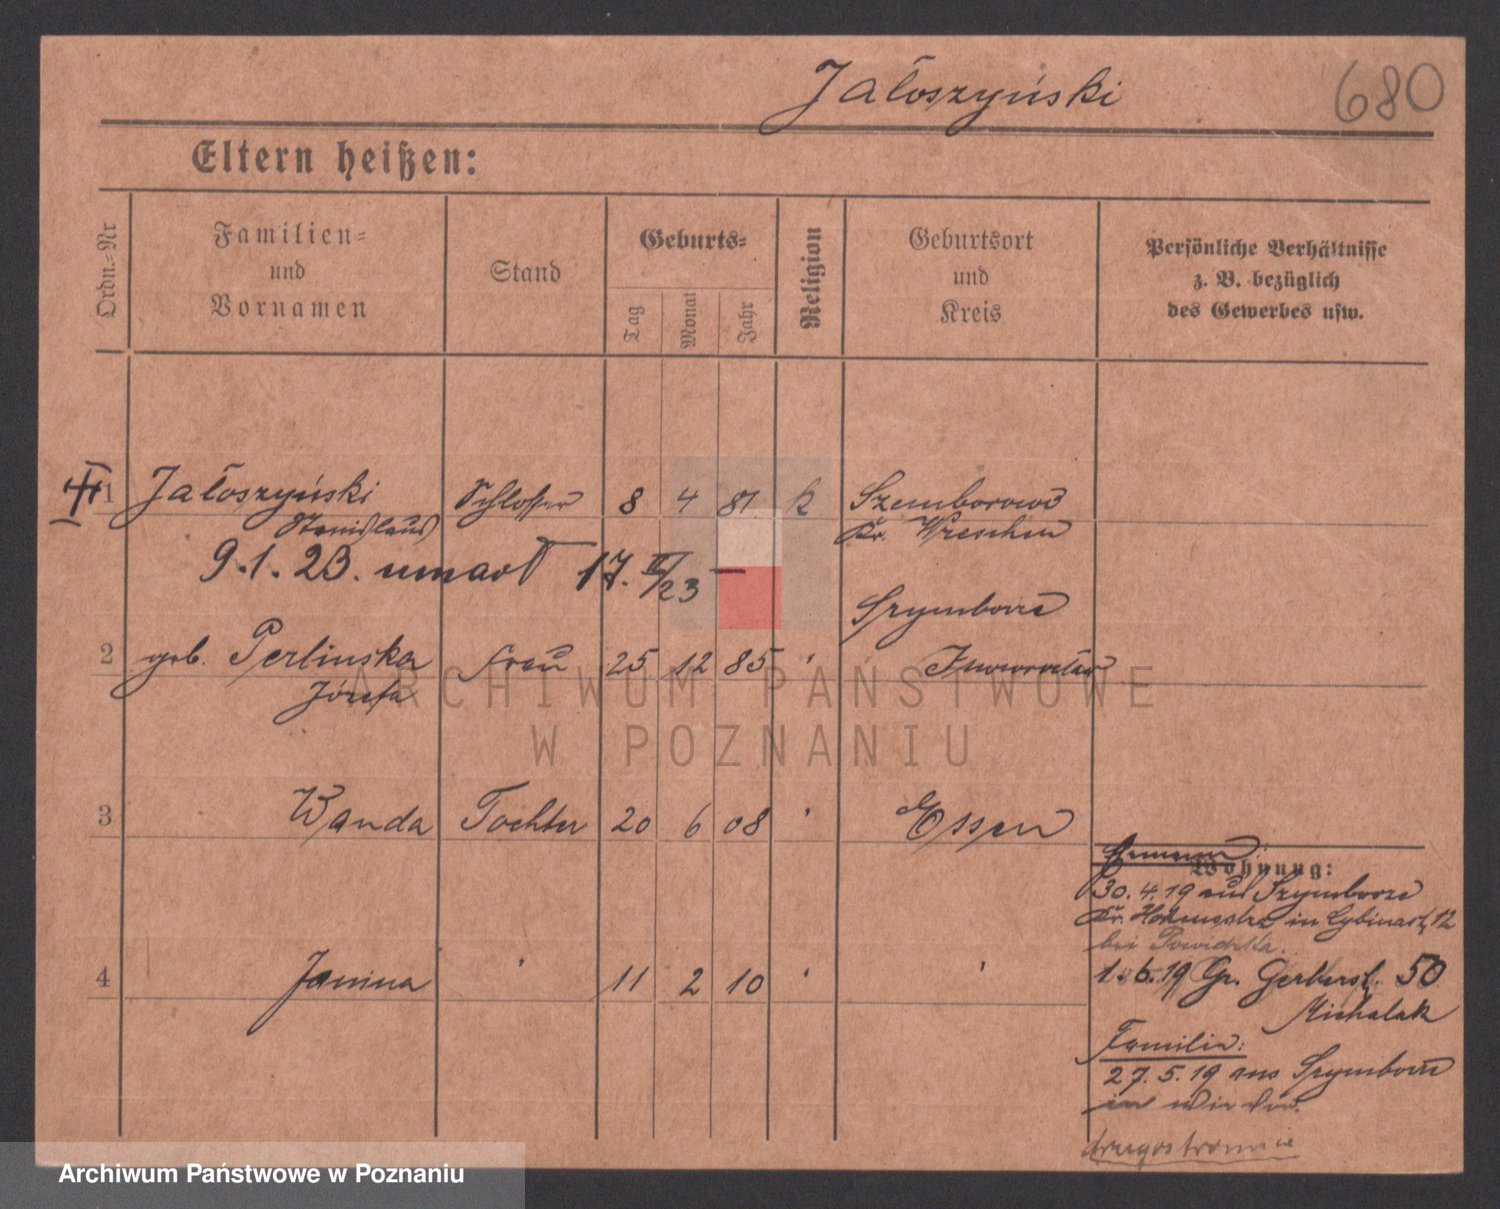 Jałoszyński 680
Eltern heißen:
Ordn.-Nr
Familien-
und
Vornamen
Stand
Geburts-
Tag
Monat
Jahr
Religion
Geburtsort
und
Kreis
Persönliche Verhältnisse
z. B. bezüglich
des Gewerbes usw.
1 Jałoszyński Schlosser 8 4 81 k Szemborowo
Stanislaus Kr. Wreschen
9.1.23. umarł 17. II/23 -
Szymborze
2 geb. Perlinska Frau 25 12 85 ' Inowrocław
Józefa
3 Wanda Tochter 20 6 08 ' Essen
Wohnung:
30.4.19 aus Szymborze
Kr. Hohensalza in Lybinast. 12
bei
4 Janina ' 11 2 10 ' '
1.6.19 Gr. Gerberst. 50
Michalak
Familie:
27.5.19 aus Szymborze
in wie vor.
drugostronnie
ARCHIWUM PAŃSTWOWE
W POZNANIU
Archiwum Państwowe w Poznaniu